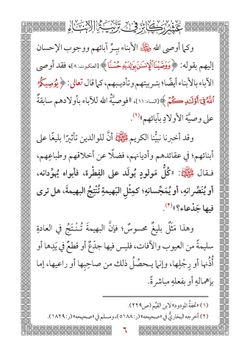 عشر ركائز في تربية الأبناء
وكما أوصى الله ﷻ الأبناء ببِرِّ آبائهم ووجوب الإحسان
إليهم بقوله: ﴿وَوَصَّيْنَا الْإِنسَانَ بِوَالِدَيْهِ حُسْنًا﴾ [العنكبوت: ٨]؛ فقد أوصى
الآباء بالأبناء أيضًا؛ بتربيتهم وتأديبهم، كما قال تعالى: ﴿يُوصِيكُمُ
اللَّهُ فِي أَوْلَادِكُمْ﴾ [النساء: ١١]، فوصيَّة الله للآباء بأولادهم سابقةٌ
على وصيَّة الأولاد بآبائهم(١).
وقد أخبرنا نبيُّنا الكريم ﷺ أنَّ للوالدين تأثيرًا بليغًا على
أبنائهم؛ في عقائدهم وأديانهم، فضلًا عن أخلاقهم وطباعهم،
فقال ﷺ: «كُلُّ مَولودٍ يُولَدُ على الفِطْرة، فأبواه يُهوِّدانه،
أو يُنَصِّرانِه، أو يُمَجِّسانه؛ كمِثْلِ البهيمةِ تُنْتَجُ البهيمةَ، هل ترى
فيها جَدْعاء؟»(٢).
وهذا مَثَلٌ بليغٌ محسوسٌ؛ فإنَّ البهيمةَ تُنْتَجُ في العادةِ
سليمةً من العيوبِ والآفات، فليس فيها جدْعٌ أو قطعٌ في يدِها أو
أُذُنها أو رِجْلِها، وإنما يحصُلُ ذلك من صاحبِها أو راعيها، إما
بإهمالِهِ أو بفعلِهِ مباشرةً.
(١) «تحفة المودود» لابن القيم (ص٢٢٩).
(٢) أخرجه البخاريُّ في «صحيحه» (ر: ٥١٨٨)، ومسلم في «صحيحه» (ر: ١٨٢٩).
٦